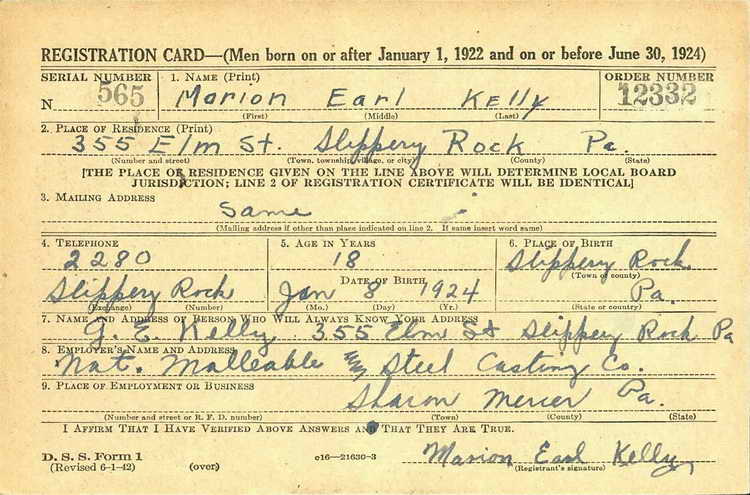 REGISTRATION CARD—(Men born on or after January 1, 1922 and on or before June 30, 1924)
SERIAL NUMBER 1. NAME (Print) ORDER NUMBER
N 565 Marion Earl Kelly 12332
(First) (Middle) (Last)
2. PLACE OF RESIDENCE (Print)
355 Elm St. Slippery Rock Pa.
(Number and street) (Town, township, village, or city) (County) (State)
[THE PLACE OF RESIDENCE GIVEN ON THE LINE ABOVE WILL DETERMINE LOCAL BOARD
JURISDICTION; LINE 2 OF REGISTRATION CERTIFICATE WILL BE IDENTICAL]
3. MAILING ADDRESS
Same
(Mailing address if other than place indicated on line 2. If same insert word same)
4. TELEPHONE 5. AGE IN YEARS 6. PLACE OF BIRTH
2280 18 Slippery Rock
DATE OF BIRTH (Town or county)
Slippery Rock Jan 8 1924 Pa.
(Exchange) (Number) (Mo.) (Day) (Yr.) (State or country)
7. NAME AND ADDRESS OF PERSON WHO WILL ALWAYS KNOW YOUR ADDRESS
G. E. Kelly 355 Elm St Slippery Rock Pa
8. EMPLOYER'S NAME AND ADDRESS
Nat. Malleable Steel Casting Co.
9. PLACE OF EMPLOYMENT OR BUSINESS
Sharon Mercer Pa.
(Number and street or R. F. D. number) (Town) (County) (State)
I AFFIRM THAT I HAVE VERIFIED ABOVE ANSWERS AND THAT THEY ARE TRUE.
D. S. S. Form 1
(Revised 6-1-42) (over) c16—21630-3 Marion Earl Kelly
(Registrant's signature)